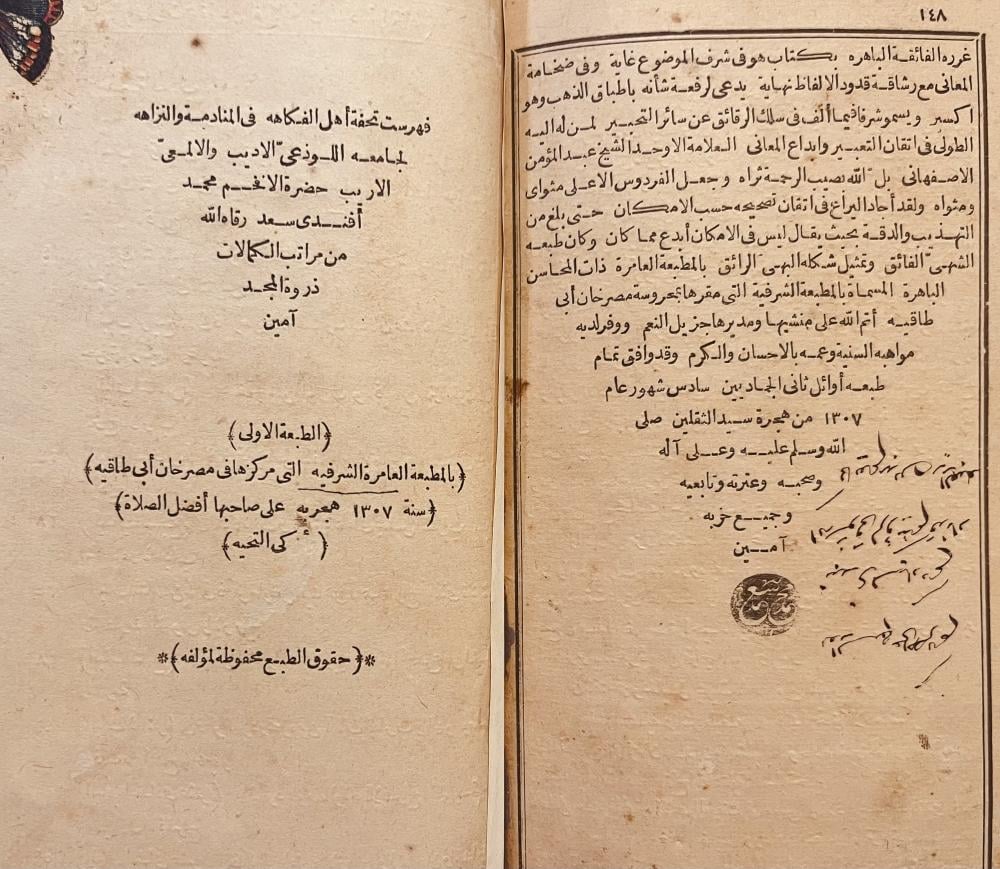 ١٤٨
غرره الفائقة الباهره بكتاب هو فى شرف الموضوع غاية وفى ضخامة
المعانى مع رشاقة قدود الالفاظ نهاية يدعى لرفعة شأنه باطباق الذهب وهو
اكسير ويسمو شرفا فيما ألف فى سلك الرقائق عن سائر التحبير لمن له اليد
الطولى فى اتقان التعبير وابداع المعانى العلامة الاوحد الشيخ عبد المؤمن
الاصفهانى بل الله بصيب الرحمة ثراه وجعل الفردوس الاعلى مثواى
ومثواه ولقد أجاد اليراع فى اتقان تصحيحه حسب الامكان حتى بلغ من
التهذيب والدقة بحيث يقال ليس فى الامكان أبدع مما كان وكان طبعه
الشهى الفائق وتمثيل شكله البهى الرائق بالمطبعة العامرة ذات المحاسن
الباهرة المسماة بالمطبعة الشرفية التى مقرها بمحروسة مصر خان أبى
طاقيه أتم الله على منشيها ومديرها جزيل النعم ووفر لديه
مواهبه السنية وعمه بالاحسان والكرم وقد وافق تمام
طبعه أوائل ثانى الجماديين سادس شهور عام
١٣٠٧ من هجرة سيد الثقلين صلى
الله وسلم عليه وعلى آله
وصحبه وعترته وتابعيه
وجميع حزبه
آمين
محمد سعد
فهرست تحفة أهل الفكاهه فى المنادمة والنزاهه
لجامعه اللوذعىّ الاديب والالمعىّ
الاريب حضرة الافخم محمد
أفندى سعد رقاه الله
من مراتب الكمالات
ذروة المجد
آمين
﴿الطبعة الاولى﴾
﴿بالمطبعة العامرة الشرفيه التى مركزها فى مصر خان أبى طاقيه﴾
﴿سنة ١٣٠٧ هجريه على صاحبها أفضل الصلاة﴾
﴿كى التحيه﴾
*﴿حقوق الطبع محفوظة لمؤلفه﴾*